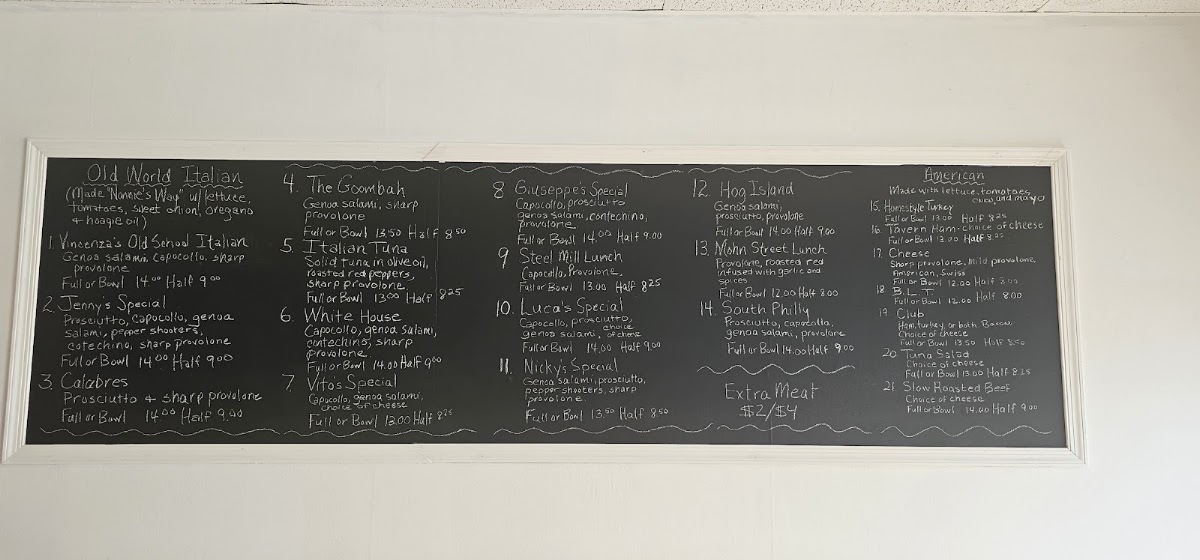 Old World Italian
(Made "Nonnie's Way" w/ lettuce,
tomatoes, sweet onion, oregano
+ hoagie oil)
1. Vincenza's Old School Italian
Genoa salami, capocollo, sharp
provolone
Full or Bowl 14.00 Half 9.00
2. Jenny's Special
Prosciutto, Capocollo, genoa
salami, pepper shooters,
cotechino, sharp provolone
Full or Bowl 14.00 Half 9.00
3. Calabres
Prosciutto + sharp provolone
Full or Bowl 14.00 Half 9.00
4. The Goombah
Genoa salami, sharp
provolone
Full or Bowl 13.50 Half 8.50
5. Italian Tuna
Solid tuna in olive oil,
roasted red peppers,
sharp provolone
Full or Bowl 13.00 Half 8.25
6. White House
Capocollo, genoa salami,
contechino, sharp
provolone
Full or Bowl 14.00 Half 9.00
7. Vitos Special
Capocollo, genoa salami,
choice of cheese
Full or Bowl 13.00 Half 8.25
8 Giuseppe's Special
Capocollo, prosciutto
genoa salami, contechino,
provolone
Full or Bowl 14.00 Half 9.00
9 Steel Mill Lunch
Capocollo, Provolone,
Full or Bowl 13.00 Half 8.25
10. Luca's Special
Capocollo, prosciutto,
genoa salami, choice of cheese
Full or Bowl 14.00 Half 9.00
11. Nicky's Special
Genoa salami, prosciutto,
pepper shooters, sharp
provolone.
Full or Bowl 13.50 Half 8.50
12. Hog Island
Genoa salami,
prosciutto, provolone
Full or Bowl 14.00 Half 9.00
13. Mohn Street Lunch
Provolone, roasted red
infused with garlic and
spices
Full or Bowl 12.00 Half 8.00
14. South Philly
Prosciutto, capocolla,
genoa salami, provolone
Full or Bowl 14.00 Half 9.00
Extra Meat
$2/$4
American
Made with lettuce, tomatoes,
and mayo
15. Homestyle Turkey
Full or Bowl 13.00 Half 8.25
16 Tavern Ham - choice of cheese
Full or Bowl 13.00 Half 8.25
17. Cheese
Sharp provolone, Mild provolone,
American, Swiss
Full or Bowl 12.00 Half 8.00
18 B.L.T
Full or Bowl 12.00 Half 8.00
19. Club
Ham, turkey, or both, Bacon,
Choice of cheese
Full or Bowl 13.50 Half 8.50
20. Tuna Salad
Choice of cheese
Full or Bowl 13.00 Half 8.25
21. Slow Roasted Beef
Choice of cheese
Full or Bowl 14.00 Half 9.00